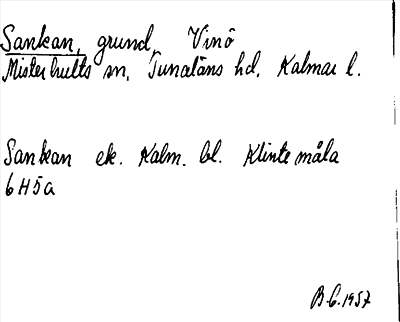 Sankan, grund, Vinö
Misterhults sn, Tunaläns hd, Kalmar l.
Sankan ek. Kalm. bl. Klintemåla
6H5a
B.G. 1957